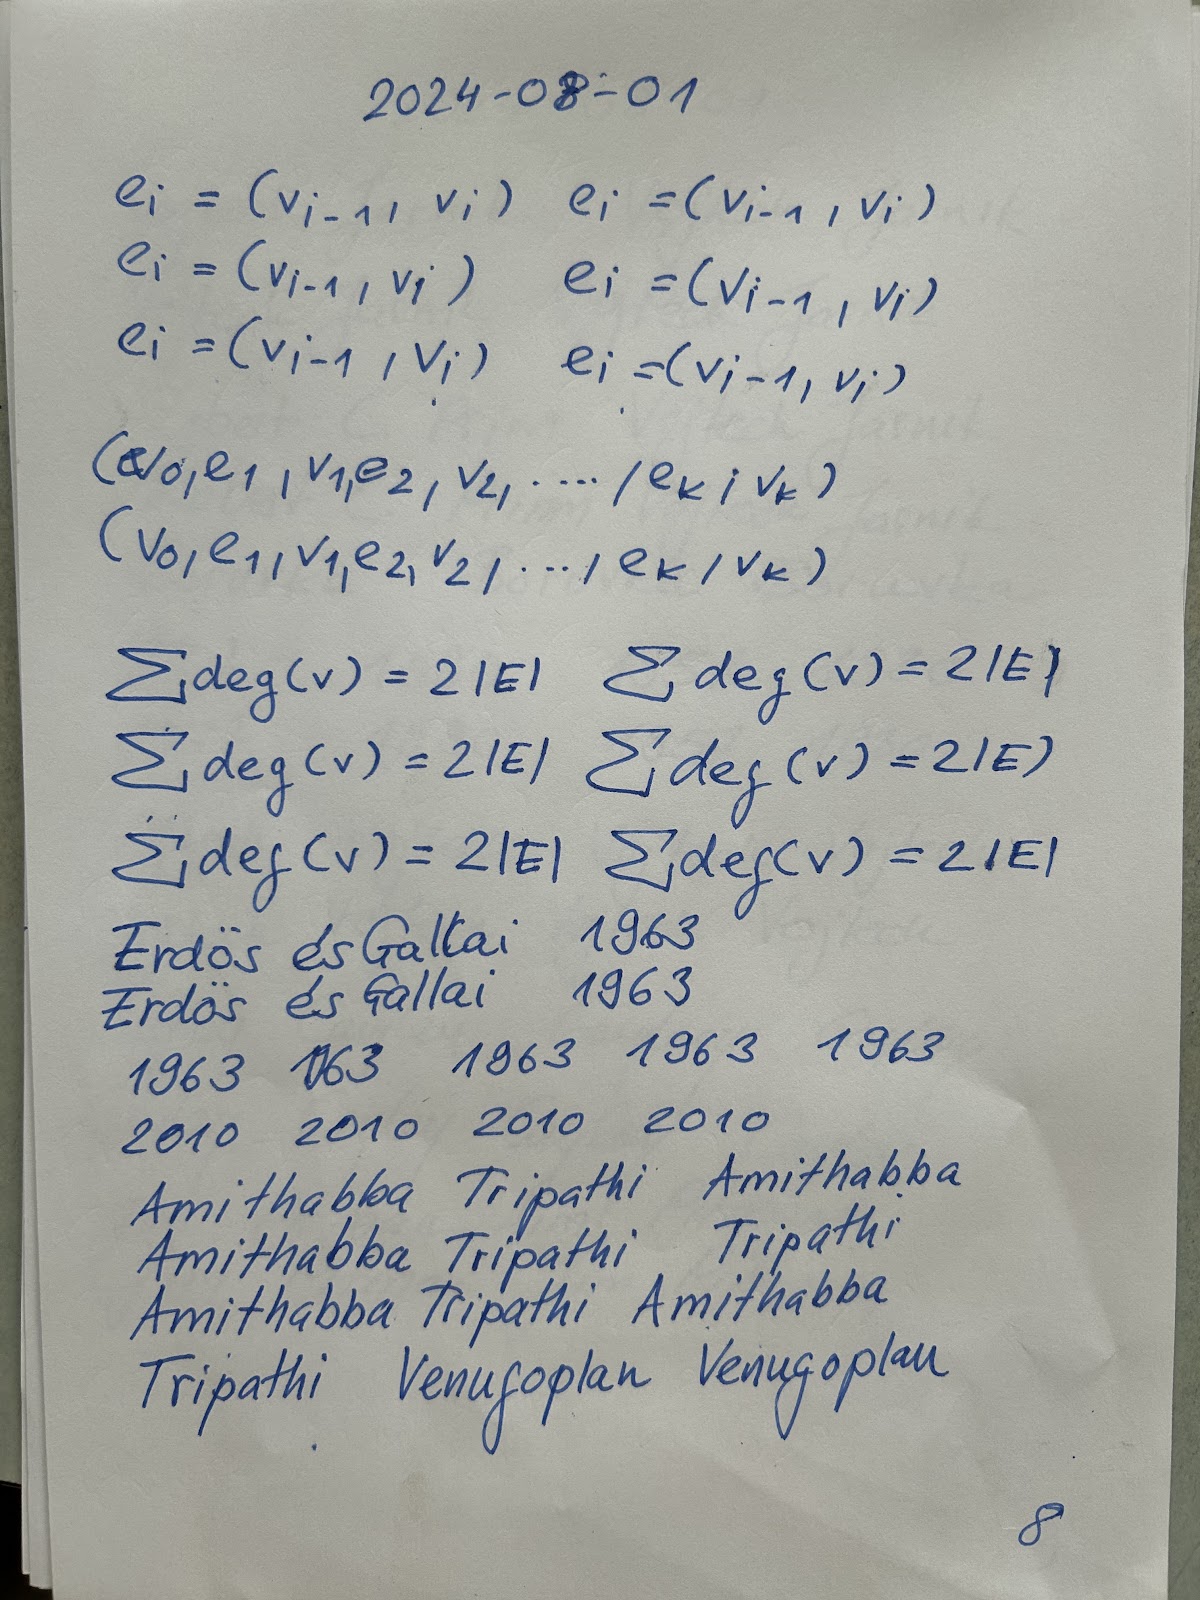 2024-08-01
ei = (vi-1, vi) ei = (vi-1, vi)
ei = (vi-1, vi) ei = (vi-1, vi)
ei = (vi-1, vi) ei = (vi-1, vi)
(v0, e1, v1, e2, v2, ...., ek, vk)
(v0, e1, v1, e2, v2, ..., ek, vk)
∑deg(v) = 2|E| ∑deg(v) = 2|E|
∑deg(v) = 2|E| ∑deg(v) = 2|E)
∑deg(v) = 2|E| ∑deg(v) = 2|E|
Erdös és Galtai 1963
Erdös és Gallai 1963
1963 1963 1963 1963 1963
2010 2010 2010 2010
Amithabba Tripathi Amithabba
Amithabba Tripathi Tripathi
Amithabba Tripathi Amithabba
Tripathi Venugoplan Venugoplan
8